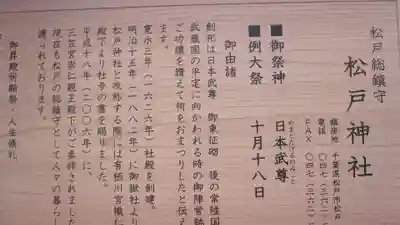 松戸総鎮守
松戸神社
鎮座地 千葉県松戸市松戸
電話 〇四七(三六二
FAX 〇四七(三六二
■御祭神 日本武尊
やまとたけるのみこと
■例大祭 十月十八日
御由緒
創祀は日本武尊 御東征砌 後の常陸国
武蔵国の平定に向かわれる時の御陣営跡
ご功績を讃えて祠をおまつりしたと伝え
ます。
寛永三年(一六二六年)社殿を創建。
明治十五年(一八八二年)に御嶽社より
松戸神社と改称する際には有栖川宮幟仁
殿下より社号の書を賜りました。
平成十八年(二〇〇六年)に、
三笠宮崇仁親王殿下がご参拝されました
現在も松戸の総鎮守として人々の暮らし
護られております。
御昇殿祈願祭・人生儀礼